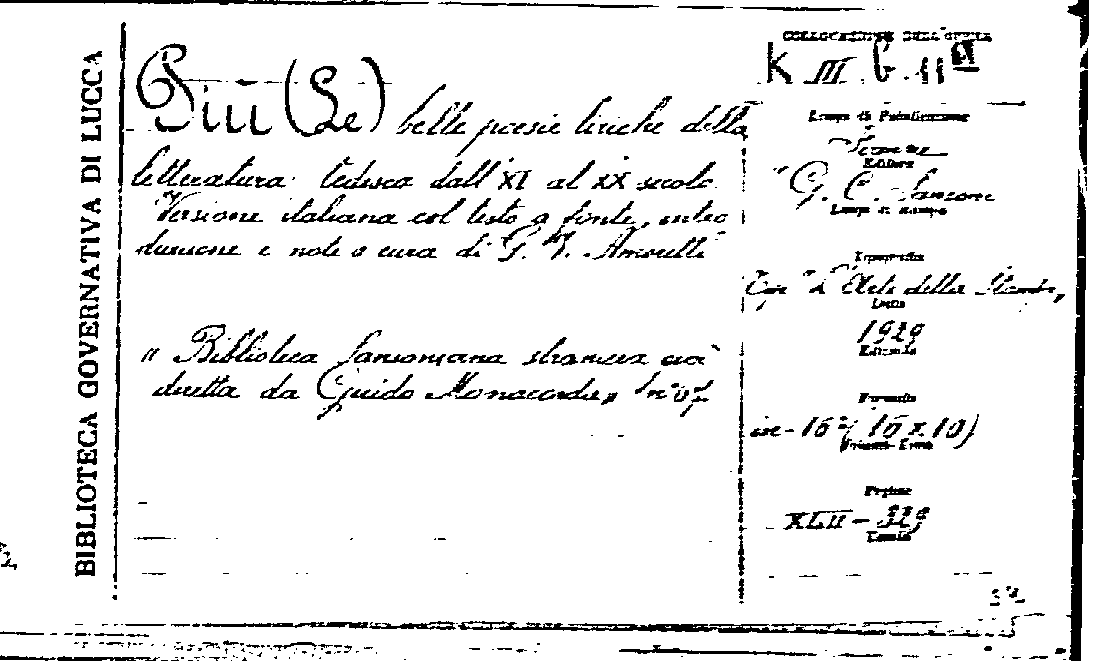 BIBLIOTECA GOVERNATIVA DI LUCCA
Più (Le) belle poesie liriche della
letteratura tedesca dall'XI al XX secolo.
Versione italiana col testo a fonte, intro
duzione e note a cura di G. V. Amoretti
"Biblioteca Sansoniana straniera
diretta da Guido Manacorda"
COLLOCAZIONE DELL'OPERA
K III b. 11
Luogo di Pubblicazione
Firenze
Editore
G. C. Sansoni
Luogo di stampa
Tipografia
Tip. "L'Arte della Stampa"
Data
1929
Edizione
Formato
in-16° (16 x 10)
Pagine
XLII - 329